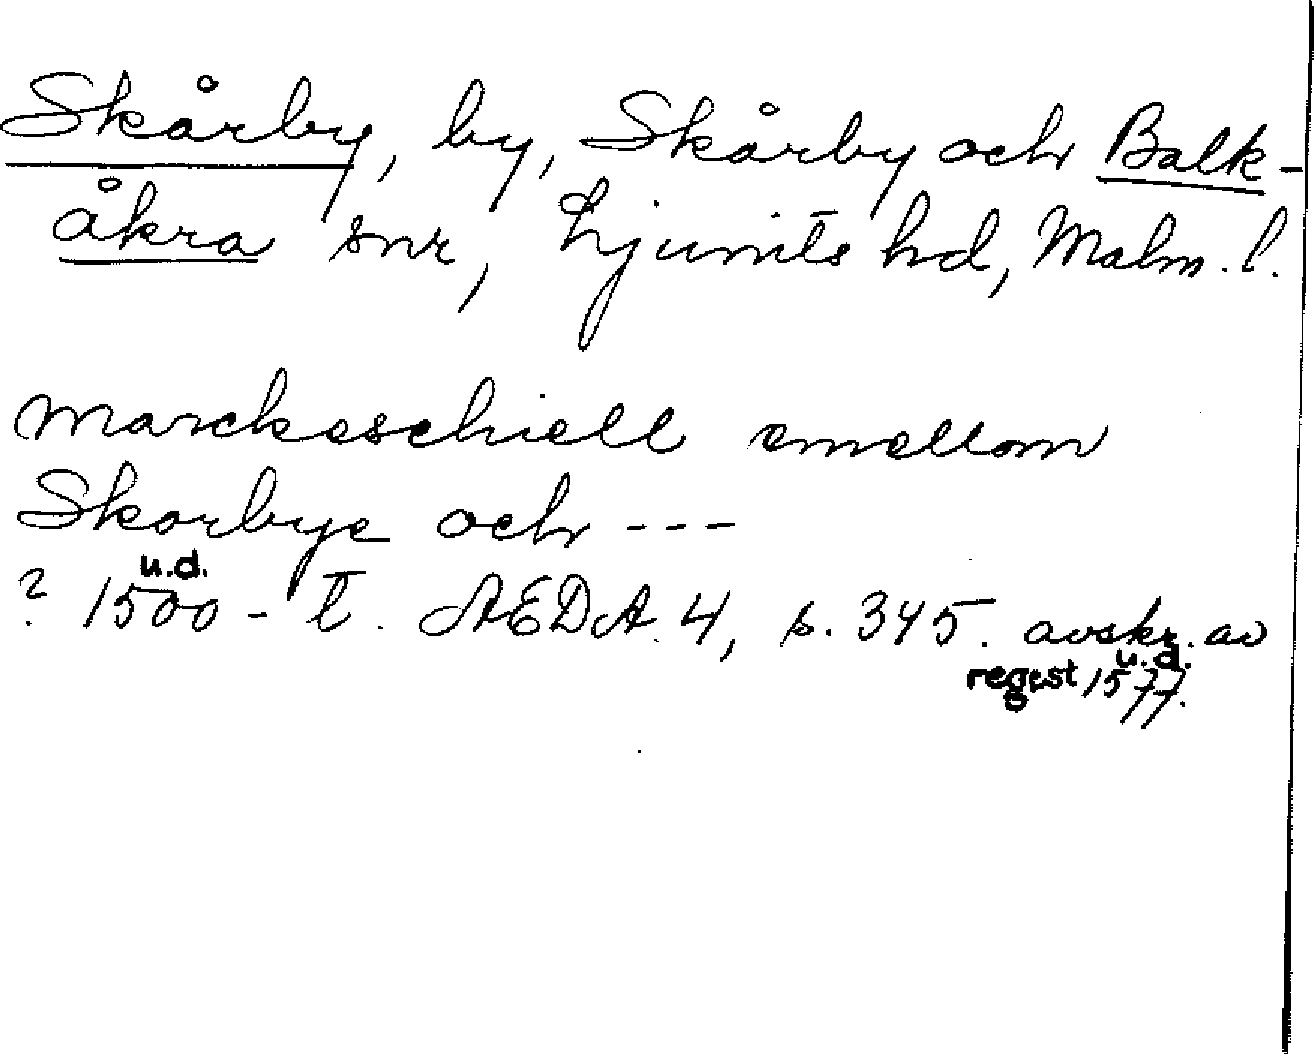 Skårby, by, Skårby och Balk-
åkra snr, Ljunits hd, Malm. l.
Marckeschiell emellom
Skorbye och ---
u.d.
? 1500-t. ÆDA 4, s. 345. avskr. av
u.d.
regest 1577.